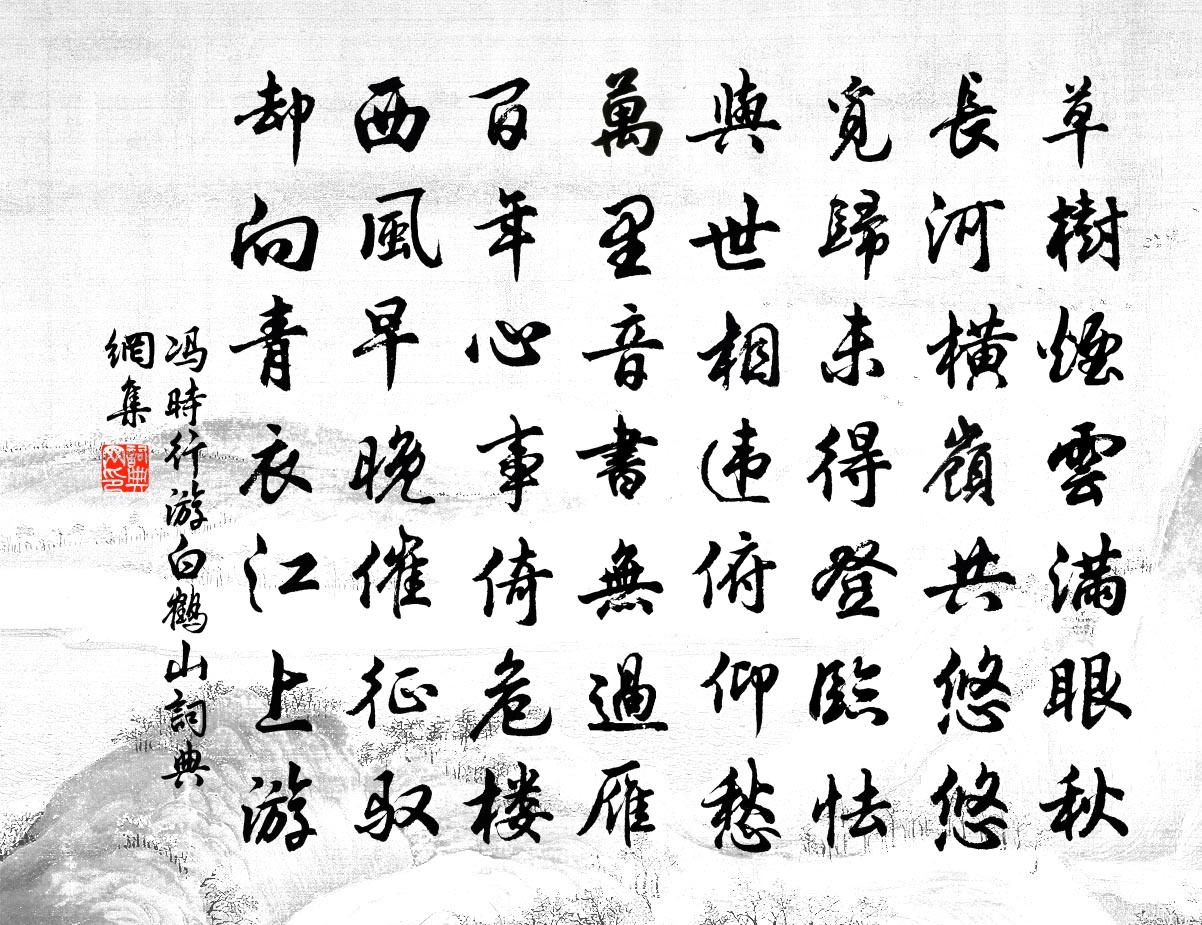 草樹煙雲滿眼秋
長河橫嶺共悠悠
覓歸未得登臨怯
與世相违俯仰愁
萬里音書無過雁
百年心事倚危楼
西風早晚催征驭
却向青衣江上游
冯時行游白鶴山詞典
網集
詞典
网印